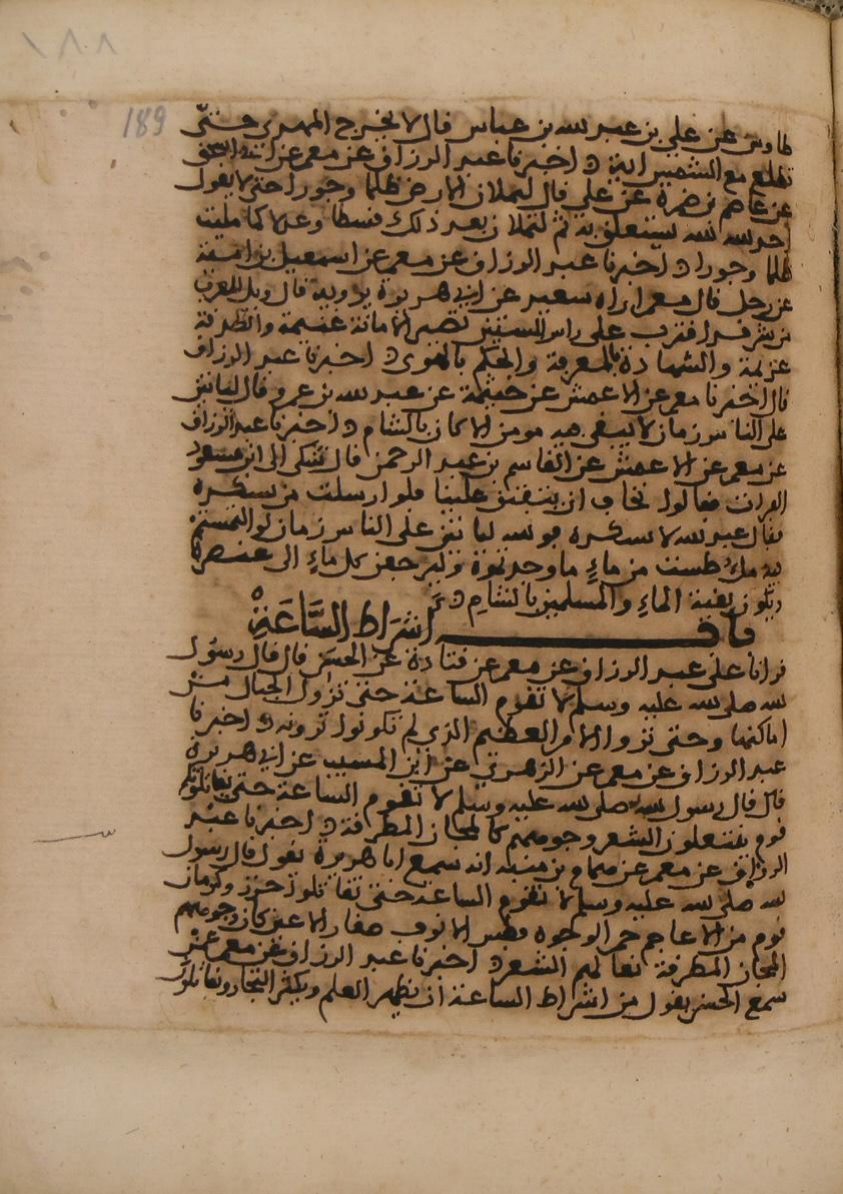 ١٨٨
189
طاوس عن علي بن عبد الله بن عباس قال لا يخرج المهدي حتى
تطلع مع الشمس اية اخبرنا عبد الرزاق عن معمر عن ابي اسحق
عن عاصم بن ضمرة عن علي قال لتملان الارض ظلما وجورا حتى لا يقول
احد الله الله يستعلق به ثم لتملان بعد ذلك قسطا وعدلا كما مليت
ظلما وجورا اخبرنا عبد الرزاق عن معمر عن اسمعيل بن امية
عن رجل قال معمر اراه سعيد عن ابي هريرة يرويه قال ويل للعرب
من شر قد اقترب على راس الستين تصير الامانة غنيمة والصدقة
غريمة والشهادة بالمعرفة والحكم بالهوى اخبرنا عبد الرزاق
قال اخبرنا معمر عن الاعمش عن خيثمة عن عبد الله بن عمرو قال لياتين
على الناس زمان لا يبقى فيه مومن الا كان بالشام اخبرنا عبد الرزاق
عن معمر عن الاعمش عن القاسم بن عبد الرحمن قال شكي الى ابن مسعود
الفرات فقالوا نخاف ان ينفتق علينا فلو ارسلت من يسكره
فقال عبد الله لا نسكره فوالله لياتين على الناس زمان لو التمستم
فيه ملء طست من ماء ما وجدتموه وليرجعن كل ماء الى عنصره
ويكون بقية الماء والمسلمين بالشام
باب اشراط الساعة
قرانا على عبد الرزاق عن معمر عن قتادة عن الحسن قال قال رسول
الله صلى الله عليه وسلم لا تقوم الساعة حتى تزول الجبال من
اماكنها وحتى تروا الامر العظيم الذي لم تكونوا ترونه اخبرنا
عبد الرزاق عن معمر عن الزهري عن ابن المسيب عن ابي هريرة
قال قال رسول الله صلى الله عليه وسلم لا تقوم الساعة حتى يقاتلكم
قوم ينتعلون الشعر وجوههم كالمجان المطرقة اخبرنا عبد
الرزاق عن معمر عن همام بن منبه انه سمع ابا هريرة يقول قال رسول
الله صلى الله عليه وسلم لا تقوم الساعة حتى تقاتلوا خوز وكرمان
قوم من الاعاجم حمر الوجوه فطس الانوف صغار الاعين كان وجوههم
المجان المطرقة نعالهم الشعر اخبرنا عبد الرزاق عن معمر عمن
سمع الحسن يقول من اشراط الساعة ان يظهر العلم ويكثر التجار وتقاتلون